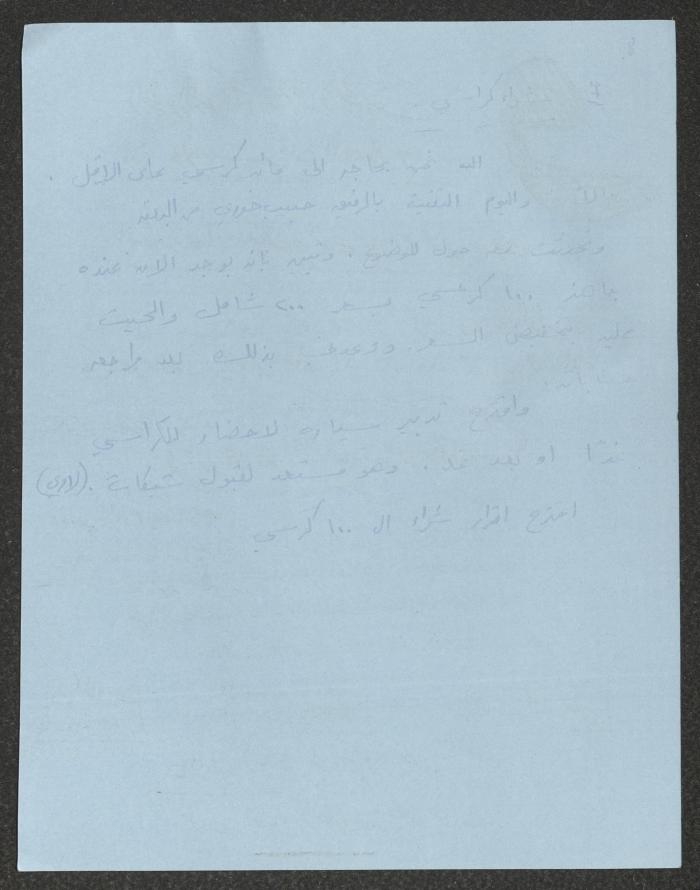 ٤ شراء كراسي.
اننا نحن بحاجة الى مائة كرسي على الاقل.
واليوم التقيت بالرفيق حبيب خوري من البعنة
وتحدثت معه حول الموضوع. وتبين بانه يوجد الان عنده
جاهز ١٠٠ كرسي بسعر ٢٠٠ شاقل والحيت
عليه بتخفيض السعر. ووعدني بذلك بعد مراجعة
حساباته.
واقترح تدبير سيارة لاحضار الكراسي
غدًا او بعد غد. وهو مستعد لقبول شيكات.
اقترح اقرار شراء ال ١٠٠ كرسي